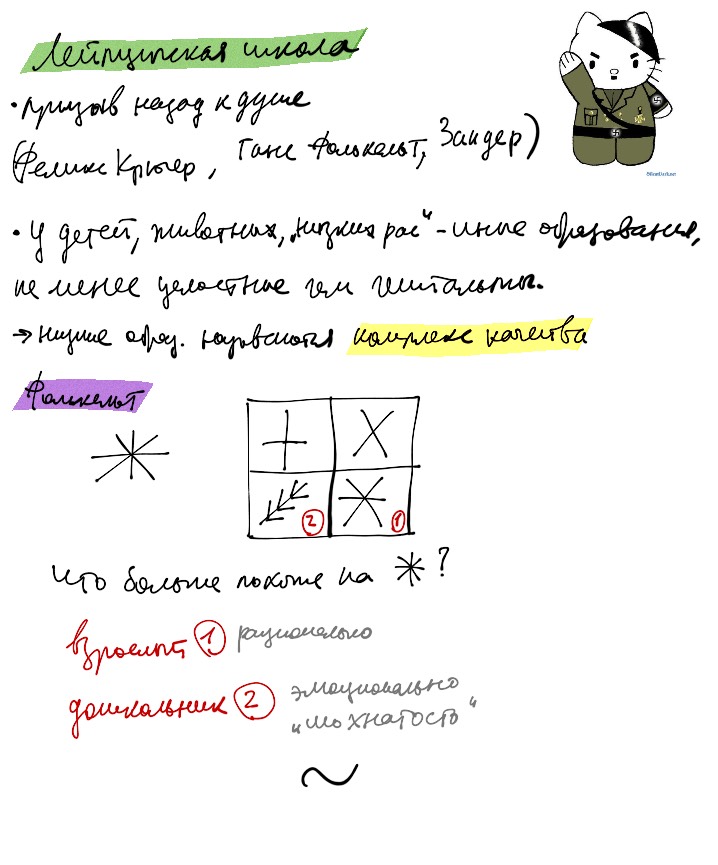 Лейпцигская школа
• призыв назад к душе
(Феликс Крюгер, Ганс Фолькельт, Зандер)
• У детей, животных, „низких рас" – иные образования,
не менее целостные чем гештальты.
→ низшие образ. называются комплекс качества
Фолькельт
2 1
Что больше похоже на ?
взрослый 1 рационально
дошкольник 2 эмоционально
„мохнатость"